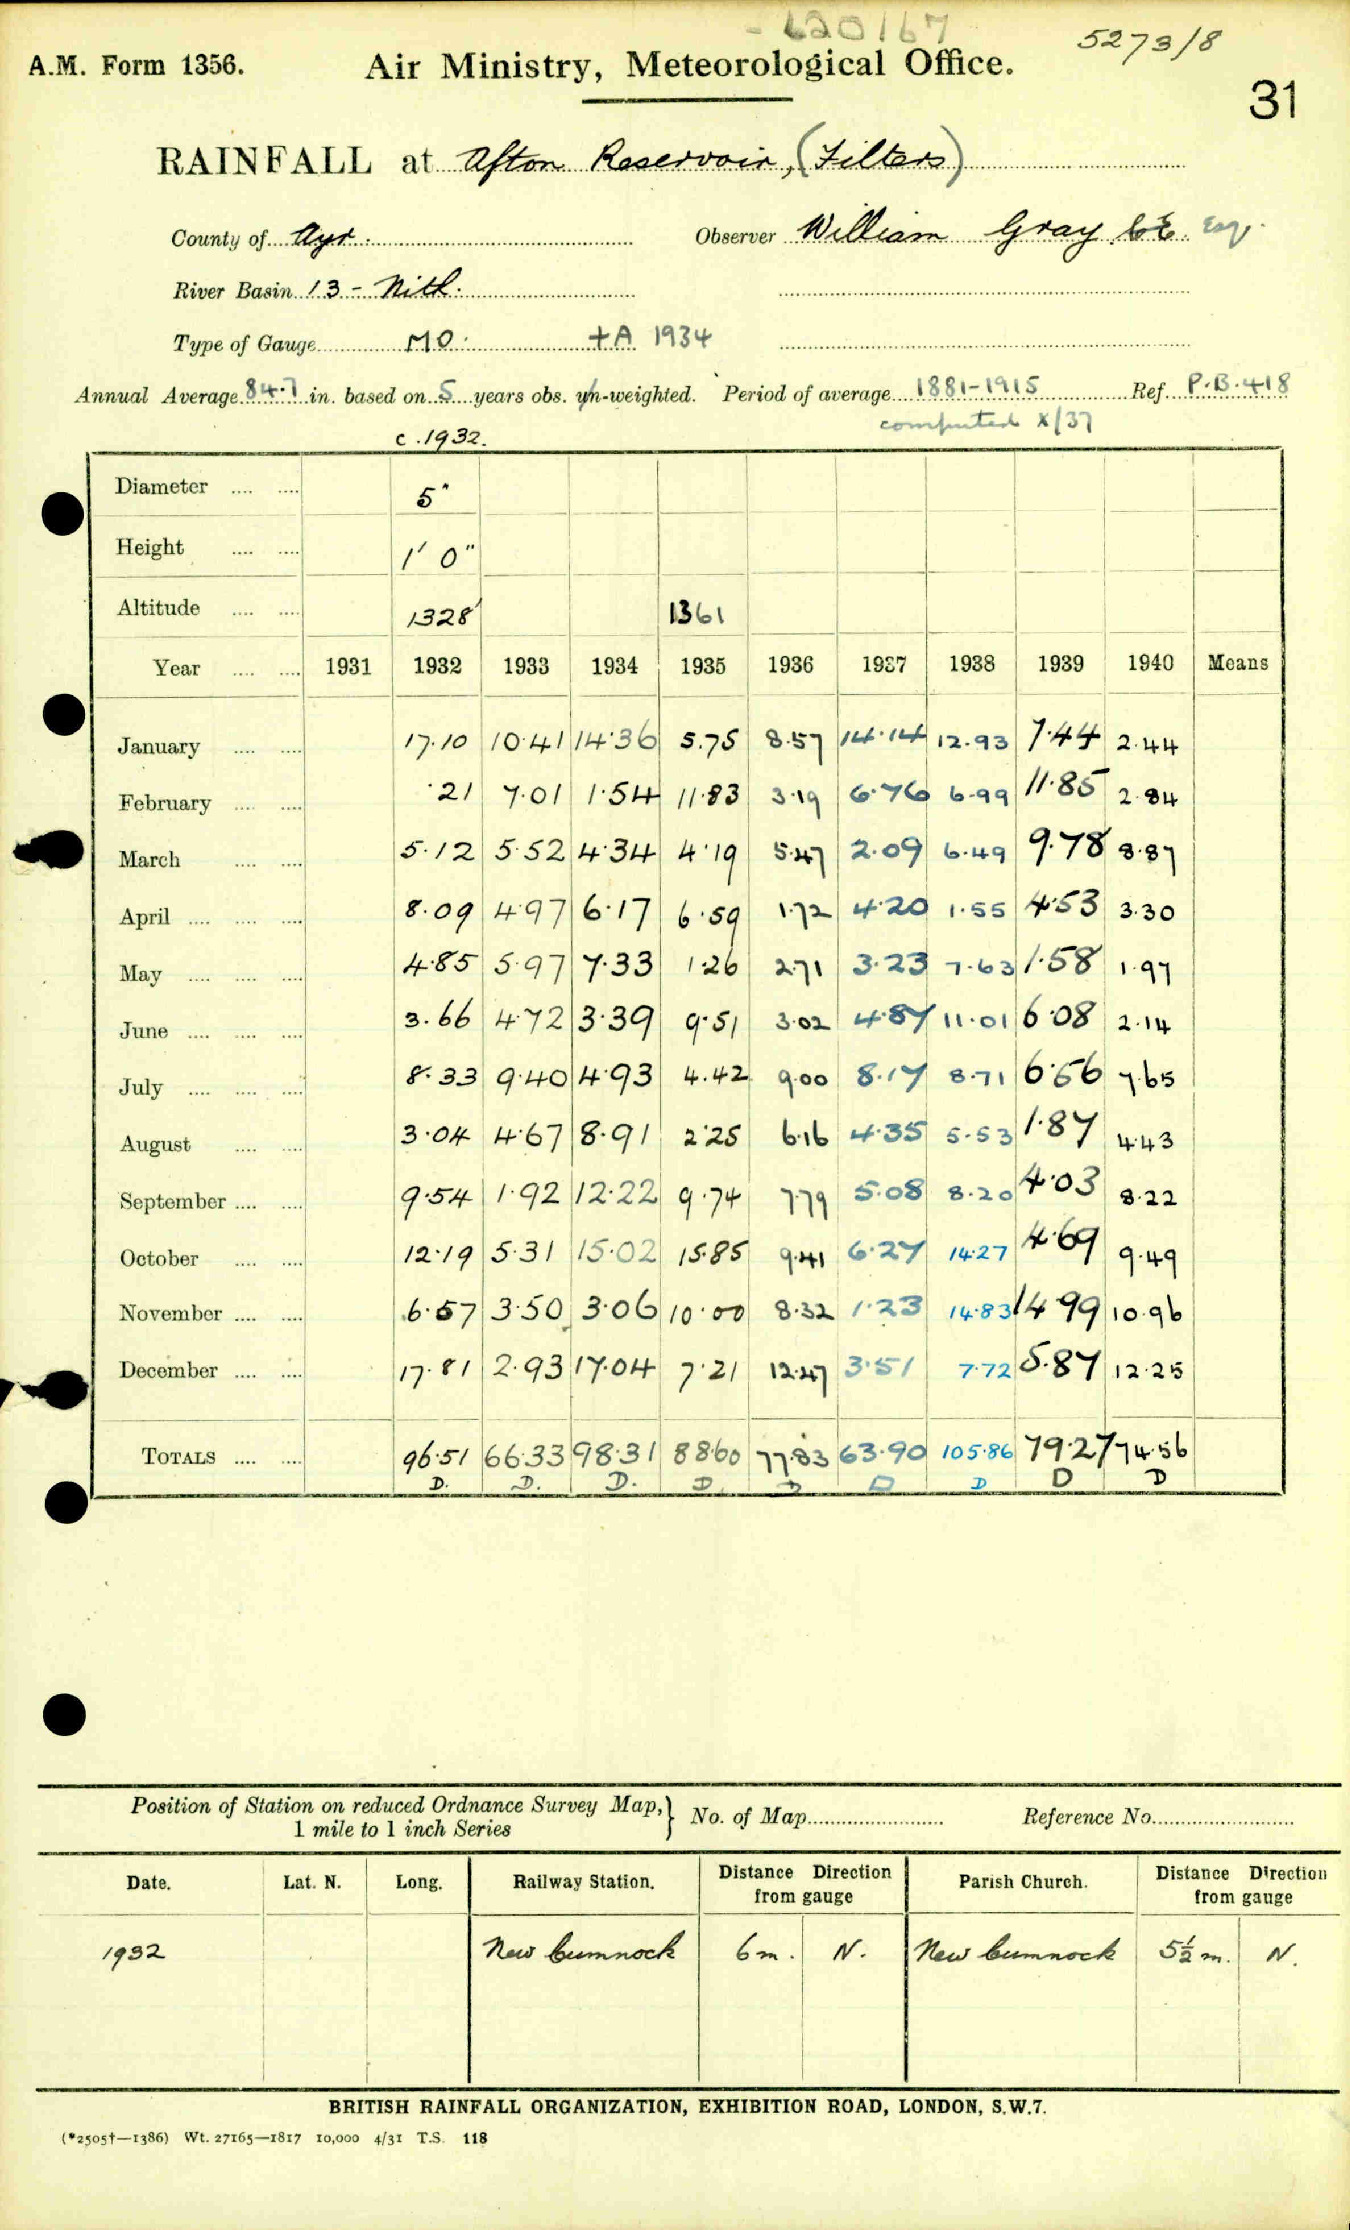 620167
5273/8
A.M. Form 1356. Air Ministry, Meteorological Office.
31
RAINFALL at Afton Reservoir, (Filters)
County of Ayr. Observer William Gray CE. Esq.
River Basin 13 - Nith.
Type of Gauge MO. +A 1934
Annual Average 84.7 in. based on 5 years obs. un-weighted. Period of average 1881-1915 Ref. P.B. 418
computed X/37
c. 1932.
Diameter .... .... 5"
Height .... .... 1' 0"
Altitude .... .... 1328' 1361
Year .... .... 1931 1932 1933 1934 1935 1936 1937 1938 1939 1940 Means
January .... .... 17.10 10.41 14.36 5.75 8.57 14.14 12.93 7.44 2.44
February .... .... .21 7.01 1.54 11.83 3.19 6.76 6.99 11.85 2.84
March .... .... 5.12 5.52 4.34 4.19 5.47 2.09 6.49 9.78 8.87
April .... .... .... 8.09 4.97 6.17 6.59 1.72 4.20 1.55 4.53 3.30
May .... .... .... 4.85 5.97 7.33 1.26 2.71 3.23 7.63 1.58 1.97
June .... .... .... 3.66 4.72 3.39 9.51 3.02 4.87 11.01 6.08 2.14
July .... .... .... 8.33 9.40 4.93 4.42 9.00 8.17 8.71 6.56 7.65
August .... .... 3.04 4.67 8.91 2.25 6.16 4.35 5.53 1.87 4.43
September .... .... 9.54 1.92 12.22 9.74 7.79 5.08 8.20 4.03 8.22
October .... .... 12.19 5.31 15.02 15.85 9.41 6.27 14.27 4.69 9.49
November .... .... 6.57 3.50 3.06 10.00 8.32 1.23 14.83 14.99 10.96
December .... .... 17.81 2.93 17.04 7.21 12.47 3.51 7.72 5.87 12.25
TOTALS .... .... 96.51 66.33 98.31 88.60 77.83 63.90 105.86 79.27 74.56
D. D. D. D. D D D D D
Position of Station on reduced Ordnance Survey Map, } No. of Map Reference No.
1 mile to 1 inch Series
Date. Lat. N. Long. Railway Station. Distance Direction from gauge Parish Church. Distance Direction from gauge
1932 New Cumnock 6 m. N. New Cumnock 5½ m. N.
BRITISH RAINFALL ORGANIZATION, EXHIBITION ROAD, LONDON, S.W.7.
(*2505†—1386) Wt. 27165—1817 10,000 4/31 T.S. 118